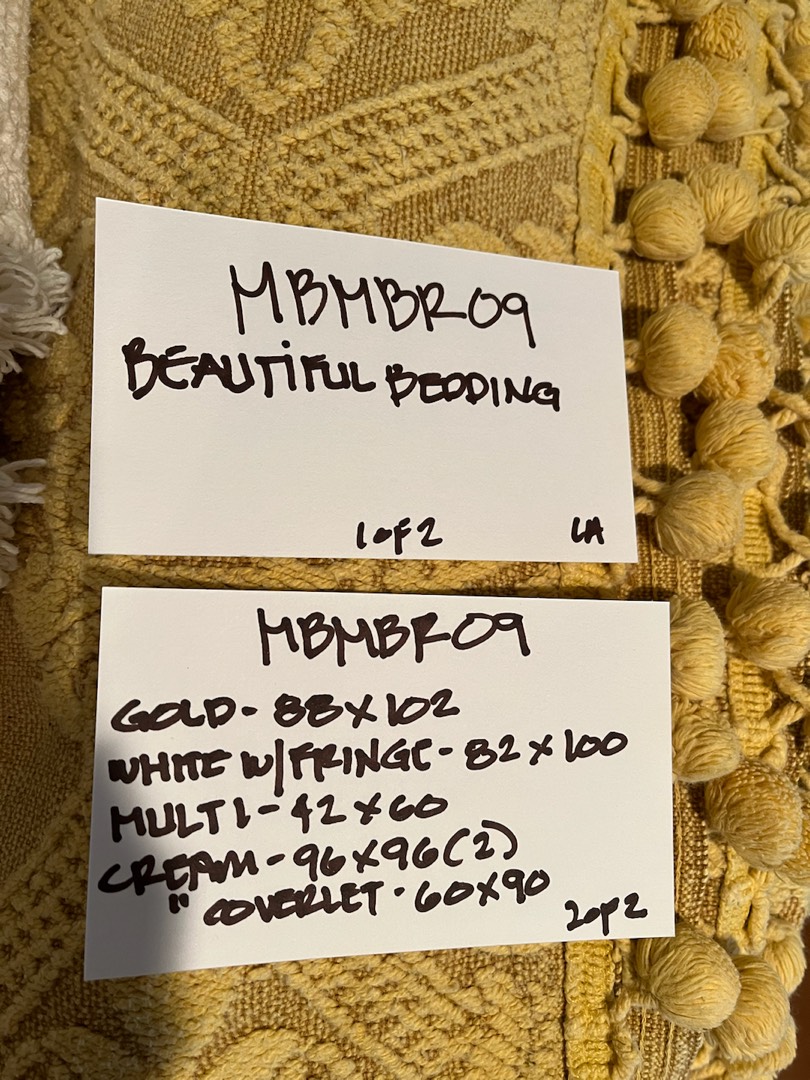 MBMBR09
BEAUTIFUL BEDDING
1 of 2 LA
MBMBR09
GOLD - 88 X 102
WHITE W/FRINGE - 82 X 100
MULTI - 42 X 60
CREAM - 96 X 96 (2)
" COVERLET - 60 X 90
2 of 2